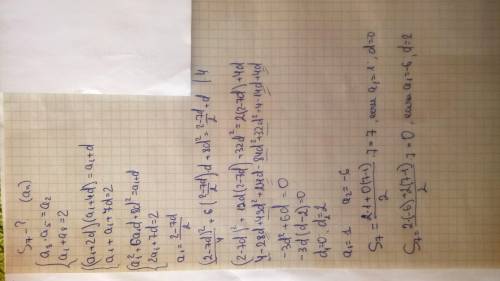 S₇ - ? (aₙ)
{ a₃ · a₅ = a₂
{ a₁ + a₈ = 2
{ (a₁+2d)(a₁+4d) = a₁+d
{ a₁ + a₁ + 7d = 2
{ a₁² + 6a₁d + 8d² = a₁+d
{ 2a₁ + 7d = 2
a₁ = (2-7d)/2
(2-7d)²/4 + 6·((2-7d)/2)·d + 8d² = (2-7d)/2 + d | 4
(2-7d)² + 12d(2-7d) + 32d² = 2(2-7d) + 4d
4 - 28d + 49d² + 24d - 84d² + 32d² = 4 - 14d + 4d
-3d² + 6d = 0
-3d(d-2) = 0
d₁=0 d₂=2
a₁ = 1 a₂ = -6
S₇ = (2·1+0(7-1))/2 · 7 = 7, если a₁=1, d=0
S₇ = (2·(-6)+2(7-1))/2 · 7 = 0, если a₁=-6, d=2